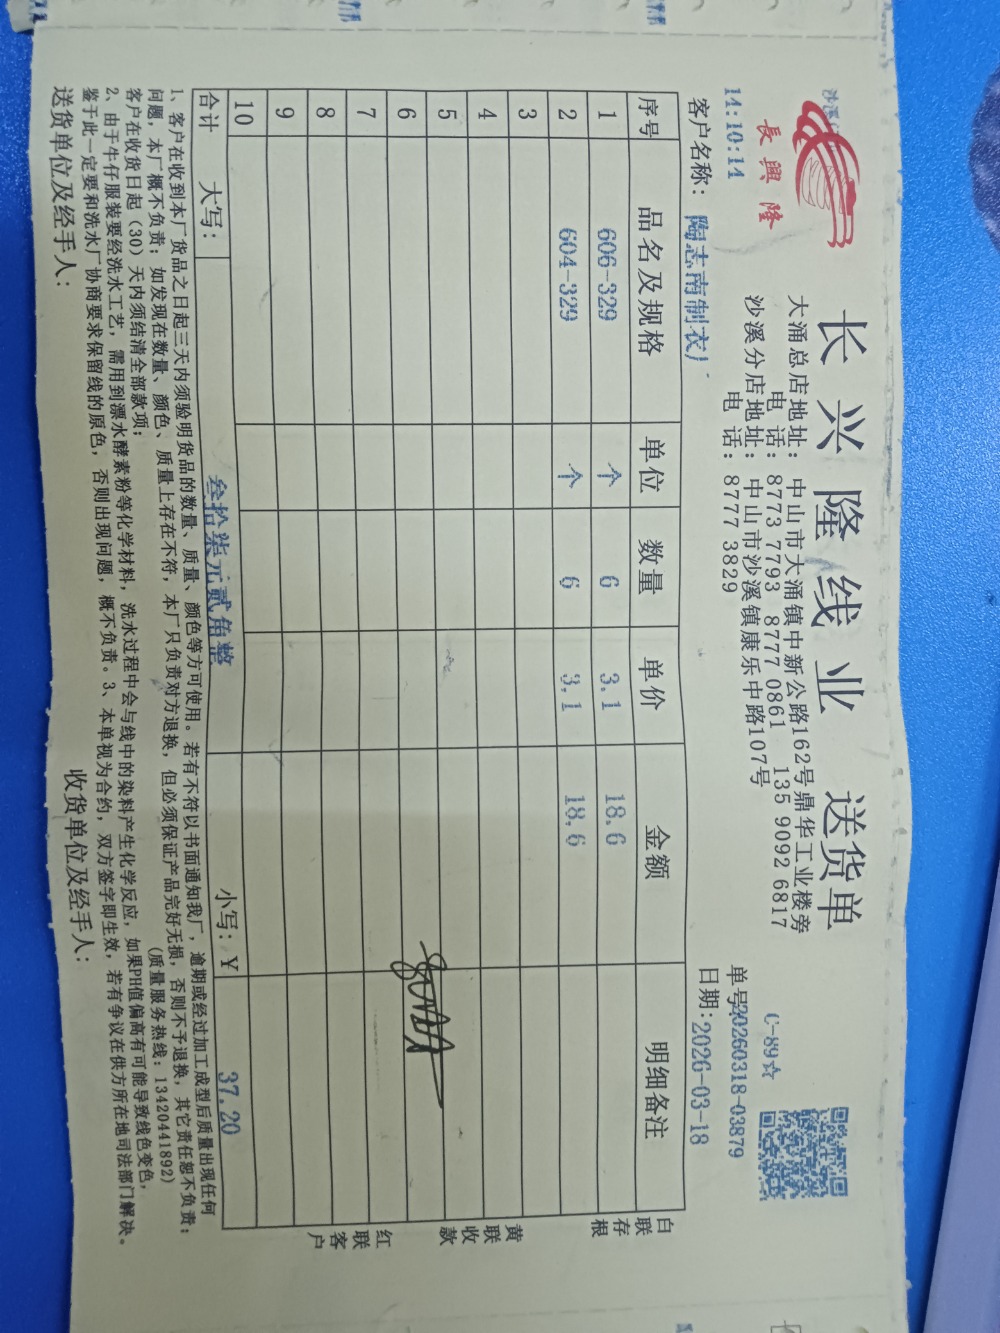 長興隆
长兴隆线业 送货单
大涌总店地址：中山市大涌镇中新公路162号鼎华工业楼旁
电 话：8773 7793 8777 0861 135 9092 6817
沙溪分店地址：中山市沙溪镇康乐中路107号
电 话：8777 3829
C-89☆
14:10:14
单号20260318-03879
客户名称：陶志南制衣厂
日期：2026-03-18
序号 品名及规格 单位 数量 单价 金额 明细备注
1 606-329 个 6 3.1 18.6
2 604-329 个 6 3.1 18.6
3
4
5
6
7
8
9
10
合计 大写： 叁拾柒元贰角整 小写：￥ 37.20
白联存根
黄联收款
红联客户
1、客户在收到本厂货品之日起三天内须验明货品的数量、质量、颜色等方可使用。若有不符以书面通知我厂，逾期或经过加工成型后质量出现任何
问题，本厂概不负责；如发现在数量、颜色、质量上存在不符，本厂只负责对方退换，但必须保证产品完好无损，否则不予退换，其它责任恕不负责；
客户在收货日起（30）天内须结清全部款项； (质量服务热线：13420441892)
2、由于牛仔服装要经洗水工艺，需用到漂水酵素粉等化学材料，洗水过程中会与线中的染料产生化学反应，如果PH值偏高有可能导致线色变色，
鉴于此一定要和洗水厂协商要求保留线的原色，否则出现问题，概不负责。3、本单视为合约，双方签字即生效，若有争议在供方所在地司法部门解决。
送货单位及经手人： 收货单位及经手人：